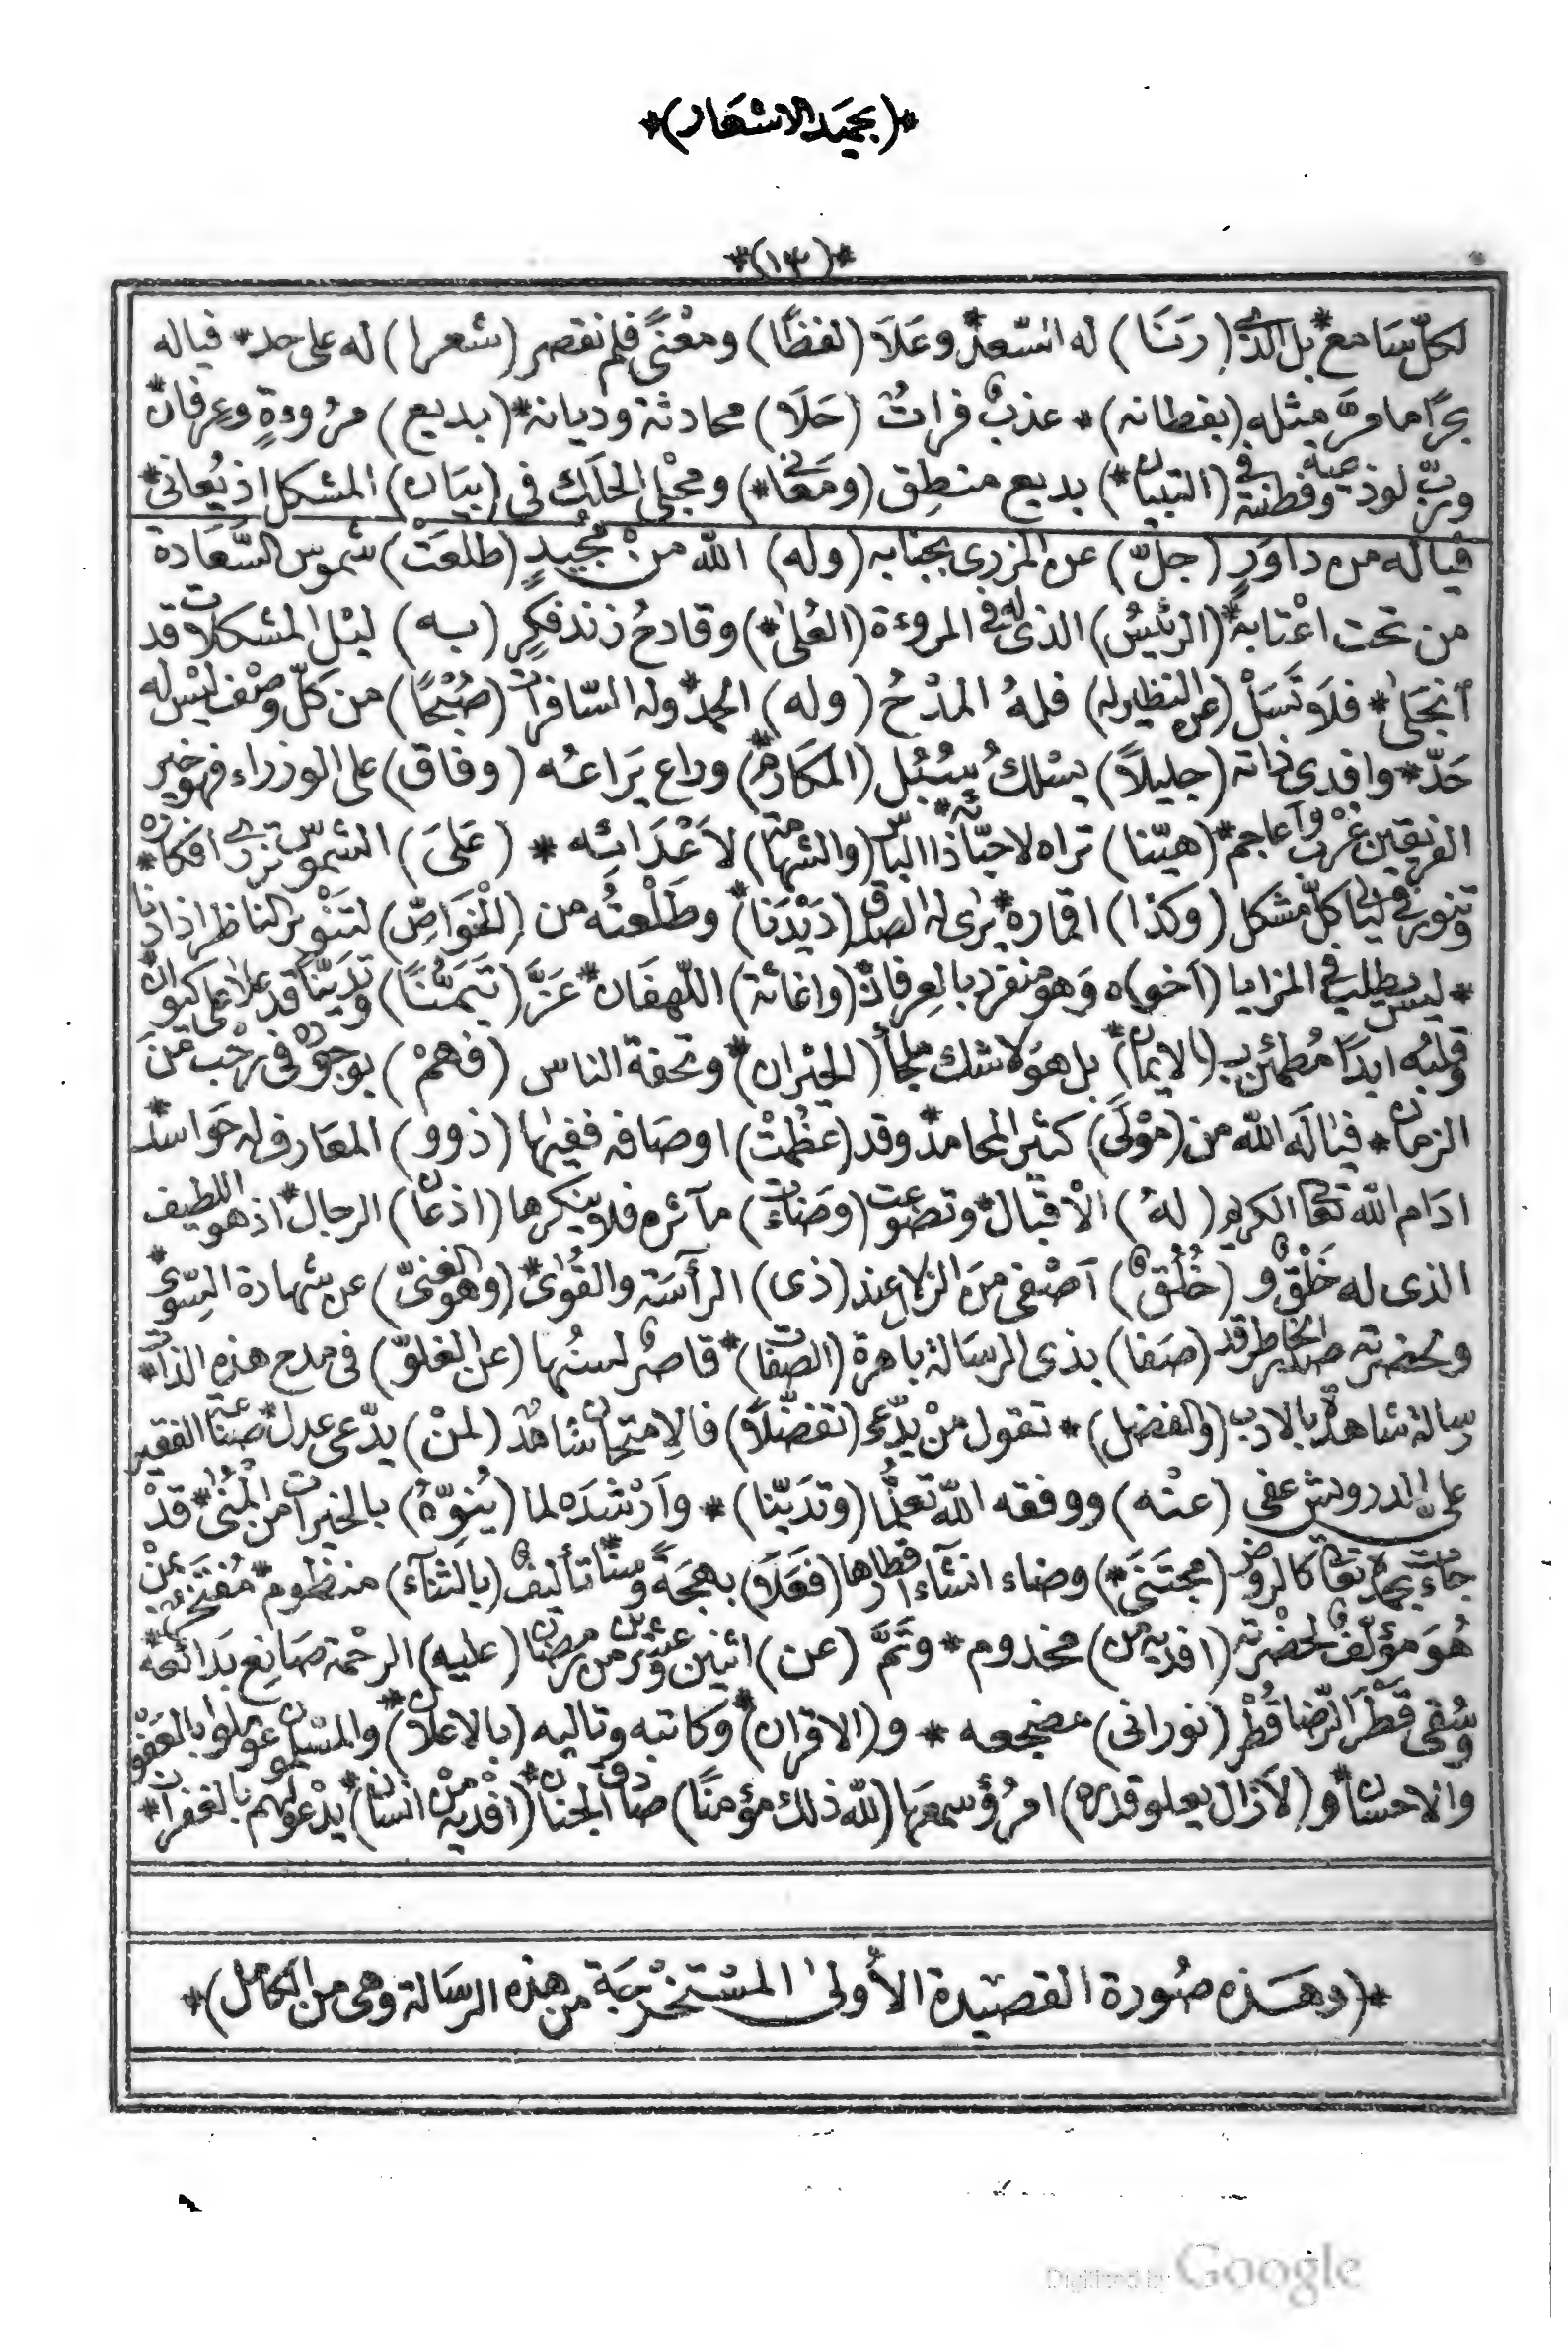 *(بحميد الاشعار)*
*(١٣)*
لكلّ سَامع* بل الذى (رَنَا) له السّعد* وعَلَا (لفظًا) ومعْنىً فلم نقصر (شعرا) له على حد* فياله
بحرًا ما مرَّ مثله (بفطانه)* عذبٌ فراتٌ (حَلَا) محادثة وديانه* (بديع) مرُوءةٍ وعِرفان*
وربّ لوذعية وفطنة فى (التبيان*) بديع منطِق (ومَعَانى*) ومجْلى الحلَك فى (بيَان) المشكل اذ يُعانى*
فياله من داوَرٍ (جلّ) عن المزرى بجنابه (وله) الله منْ مُجيدٍ (طلعَتْ) شموس السَّعَادة
من تحت اعْتابه* (الرئيسُ) الذى له فى المروءة (العُلىٰ*) وقادحُ زند فكرٍ (به) ليْل المشكلات قد
أنجَلىٰ* فلَا تَسَلْ (عن النظير له) فلهُ المدْحُ (وله) الحمد* وله السّافرات (صُبْحًا) من كلّ وصْف ليْس له
حَدّ* وافدى ذاته (جليلاً) يسْلك سُبُل (المكارم*) وراع يَراعُه (وفاق) على الوزراء فهو خير
الفريقين عُرْب وأعاجم* (هيّنا) تراه لاحبّائه* ذا البأس (والشهامة) لاَعْدَائه * (عَلىَ) الشموس تزرى افكاره*
وتنور فى ليالى كلّ مشكل (وكذا) اقماره* يرى له الصدق (دَيْدَنا*) وطَلْعتُه من (الغوَاصّ) لتنوير الناظر اذا رنا
* ليس يطلب فى المزايا (اَخو)ه وَهو منفرد بالعِرفان* (واغاثة) اللّهفَان* عَزَّ (تَيَمُّنًا) وتديّنًا قد علا على كيوان*
وقلبُه ابدًا مُطمئن ب(الايمان*) بل هوَ لا شك ملجأ (الحيْران*) وتحفة الناس (فهمْ) بوجوده فى رحْب منَ
الزمان* فيالَه الله من (موْلىً) كثير المحامد* وقد (عظُمَتْ) اوصَافه ففيها (ذوو) المعَارف له حَوَاسد
ادَام الله تعالى الكريم (لهُ) الْاقبال* وتضوعت (وضَاءت) مآثره فلا ينكرها (اذعان) الرجال* اذ هو اللطيف
الذى له خَلْقٌ و(خُلُقٌ) اَصْفى منَ الزلال عند (ذى) الرأسَة والقُوىٰ* (وهو الغنىّ) عن شهادة السِّوىٰ*
ولحضرته صدر الخاطر قد (صَفا) بذى الرسَالة باهرة (الصفات*) قاصرٌ لسنُها (عن الغلوّ) فى مدح هذه الذات*
رسالة شاهدة بالادب (والفضل)* تقول منْ يدّعى (تفضّلاً) فالاِمتحان شاهدٌ (لمنْ) يدّعى عدل* صناعة الفقير
على الدرويش عفى (عنْه) ووفقه الله تعلّمًا (وتدَيّنا)* وأرْشدَه لما (يُنوّهُ) بالخيرات من المُنىٰ* قدْ
جاءت بحمده تعالى كالروض (مجتَنىً*) وضاء انشاء اقطارها (فعَلَا) بهجَةً وسنًا* تأليفٌ (بالثناء) منظوم* مُفتخرٌ* بمنْ
هُوَ مؤلّفٌ لحضْرته (افديه من) مخدوم* وتَمَّ (عن) اثنين وعشرين من رمضان (عليه) الرحْمة صَانِع بدَائعه*
وسُقى قَطْرَ الرّضا قُطْر (نورانى) مضجعه * و(الاقران*) وكاتبه وتاليه (بالاعلان*) والمسْلمون عوملوا بالعَفْو
والاحسان* و(لاَزال يعلو قدره) امرُؤ سمعَها (لله ذلك مؤمنًا) صادف الجنان* (افْديه منْ انسان*) يدْعو لهم بالغفران*
*(وهَذه صُورة القصيْدة الأولىٰ المسْتخرَجَة من هذه الرسَالة وهى من الكامل)*
Digitized by Google